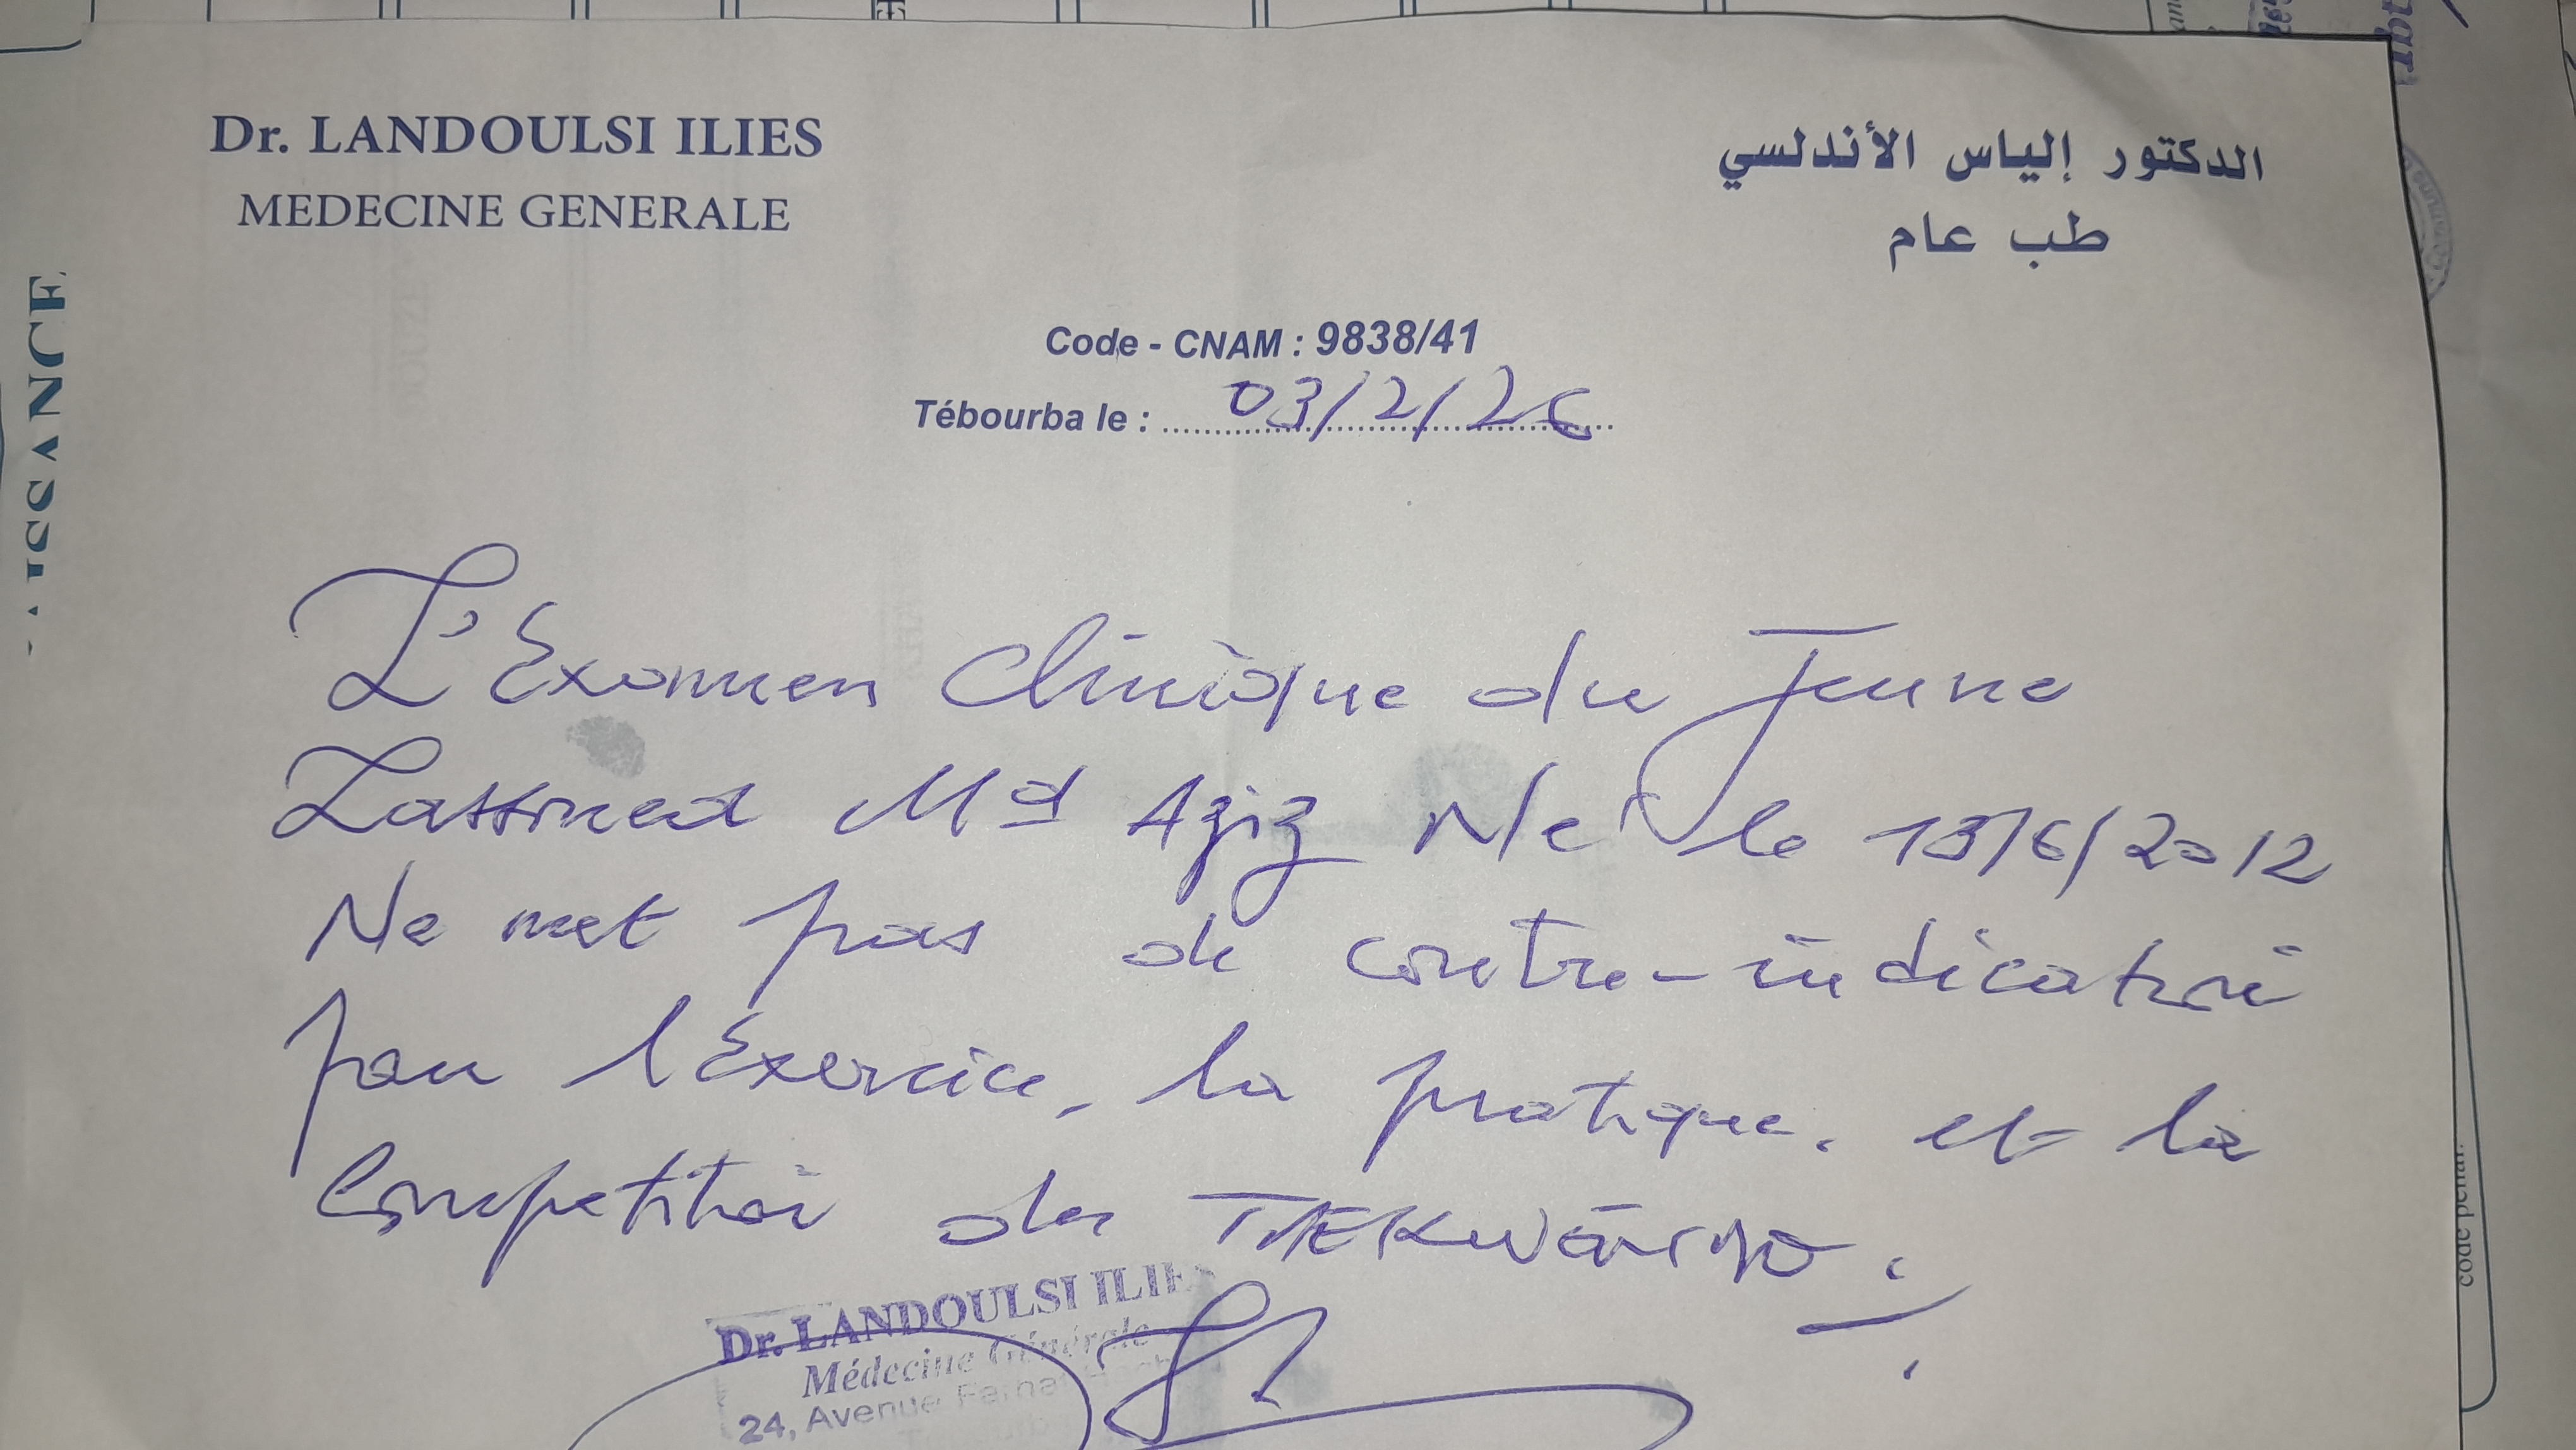 Dr. LANDOULSI ILIES
MEDECINE GENERALE
الدكتور إلياس الأندلسي
طب عام
Code - CNAM : 9838/41
Tébourba le : 03/2/26
L'Examen Clinique du Jeune
Md Aziz Ne le 13/6/2012
Ne met pas de contre-indication
pour l'Exercice, la pratique. et la
Competition de TAEKWANDO.
Dr. LANDOULSI ILIE
Médecine Générale
24, Avenue Farhat
code pénal.